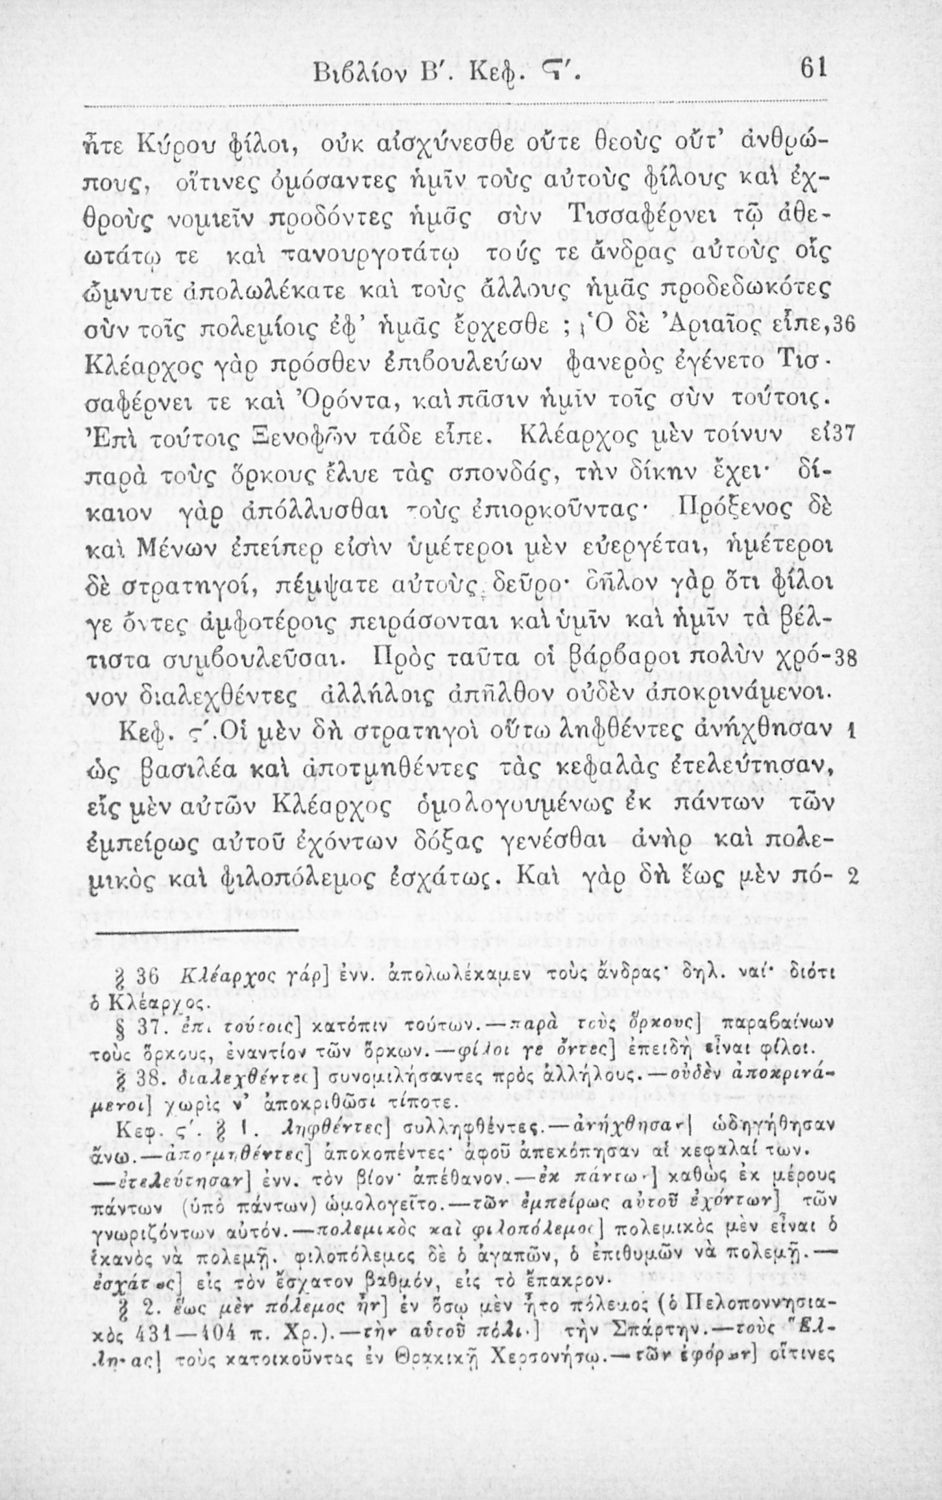 Βιβλίον Β΄. Κεφ. Ϛ΄. 61
ἦτε Κύρου φίλοι, οὐκ αἰσχύνεσθε οὔτε θεοὺς οὔτ’ ἀνθρώ-
πους, οἵτινες ὀμόσαντες ἡμῖν τοὺς αὐτοὺς φίλους καὶ ἐχ-
θροὺς νομιεῖν προδόντες ἡμᾶς σὺν Τισσαφέρνει τῷ ἀθε-
ωτάτῳ τε καὶ πανουργοτάτῳ τούς τε ἄνδρας αὐτοὺς οἷς
ὤμνυτε ἀπολωλέκατε καὶ τοὺς ἄλλους ἡμᾶς προδεδωκότες
σὺν τοῖς πολεμίοις ἐφ’ ἡμᾶς ἔρχεσθε ; Ὁ δὲ Ἀριαῖος εἶπε, 36
Κλέαρχος γὰρ πρόσθεν ἐπιβουλεύων φανερὸς ἐγένετο Τισ-
σαφέρνει τε καὶ Ὀρόντα, καὶ πᾶσιν ἡμῖν τοῖς σὺν τούτοις.
Ἐπὶ τούτοις Ξενοφῶν τάδε εἶπε. Κλέαρχος μὲν τοίνυν εἰ 37
παρὰ τοὺς ὅρκους ἔλυε τὰς σπονδάς, τὴν δίκην ἔχει· δί-
καιον γὰρ ἀπόλλυσθαι τοὺς ἐπιορκοῦντας· Πρόξενος δὲ
καὶ Μένων ἐπείπερ εἰσὶν ὑμέτεροι μὲν εὐεργέται, ἡμέτεροι
δὲ στρατηγοί, πέμψατε αὐτοὺς δεῦρο· δῆλον γὰρ ὅτι φίλοι
γε ὄντες ἀμφοτέροις πειράσονται καὶ ὑμῖν καὶ ἡμῖν τὰ βέλ-
τιστα συμβουλεῦσαι. Πρὸς ταῦτα οἱ βάρβαροι πολὺν χρό- 38
νον διαλεχθέντες ἀλλήλοις ἀπῆλθον οὐδὲν ἀποκρινάμενοι.
Κεφ. ς΄. Οἱ μὲν δὴ στρατηγοὶ οὕτω ληφθέντες ἀνήχθησαν 1
ὡς βασιλέα καὶ ἀποτμηθέντες τὰς κεφαλὰς ἐτελεύτησαν,
εἷς μὲν αὐτῶν Κλέαρχος ὁμολογουμένως ἐκ πάντων τῶν
ἐμπείρως αὐτοῦ ἐχόντων δόξας γενέσθαι ἀνὴρ καὶ πολε-
μικὸς καὶ φιλοπόλεμος ἐσχάτως. Καὶ γὰρ δὴ ἕως μὲν πό- 2
§ 36 Κλέαρχος γάρ] ἐνν. ἀπολωλέκαμεν τοὺς ἄνδρας· δηλ. ναί· διότι
ὁ Κλέαρχος.
§ 37. ἐπὶ τούτοις] κατόπιν τούτων.—παρὰ τοὺς ὅρκους] παραβαίνων
τοὺς ὅρκους, ἐναντίον τῶν ὅρκων.—φίλοι γε ὄντες] ἐπειδὴ εἶναι φίλοι.
§ 38. διαλεχθέντες] συνομιλήσαντες πρὸς ἀλλήλους.—οὐδὲν ἀποκρινά-
μενοι] χωρὶς ν’ ἀποκριθῶσι τίποτε.
Κεφ. ς΄. § 1. ληφθέντες] συλληφθέντες.—ἀνήχθησαν] ὡδηγήθησαν
ἄνω.—ἀποτμηθέντες] ἀποκοπέντες· ἀφοῦ ἀπεκόπησαν αἱ κεφαλαί των.
—ἐτελεύτησαν] ἐνν. τὸν βίον· ἀπέθανον.—ἐκ πάντων] καθὼς ἐκ μέρους
πάντων (ὑπὸ πάντων) ὡμολογεῖτο.—τῶν ἐμπείρως αὐτοῦ ἐχόντων] τῶν
γνωριζόντων αὐτόν.—πολεμικὸς καὶ φιλοπόλεμος] πολεμικὸς μὲν εἶναι ὁ
ἱκανὸς νὰ πολεμῇ. φιλοπόλεμος δὲ ὁ ἀγαπῶν, ὁ ἐπιθυμῶν νὰ πολεμῇ.—
ἐσχάτως] εἰς τὸν ἔσχατον βαθμόν, εἰς τὸ ἔπακρον·
§ 2. ἕως μὲν πόλεμος ἦν] ἐν ὅσῳ μὲν ἦτο πόλεμος (ὁ Πελοποννησια-
κὸς 431—404 π. Χρ.).—τὴν αὑτοῦ πόλιν] τὴν Σπάρτην.—τοὺς Ἕλ-
ληνας] τοὺς κατοικοῦντας ἐν Θρακικῇ Χερσονήσῳ.—τῶν ἐφόρων] οἵτινες